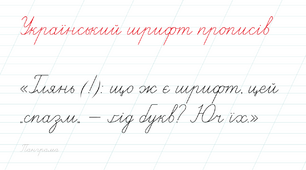 Український шрифт прописів
«Глянь (!): що ж є шрифт, цей
спазм, — ґід букв? Юч їх.»
Панграма